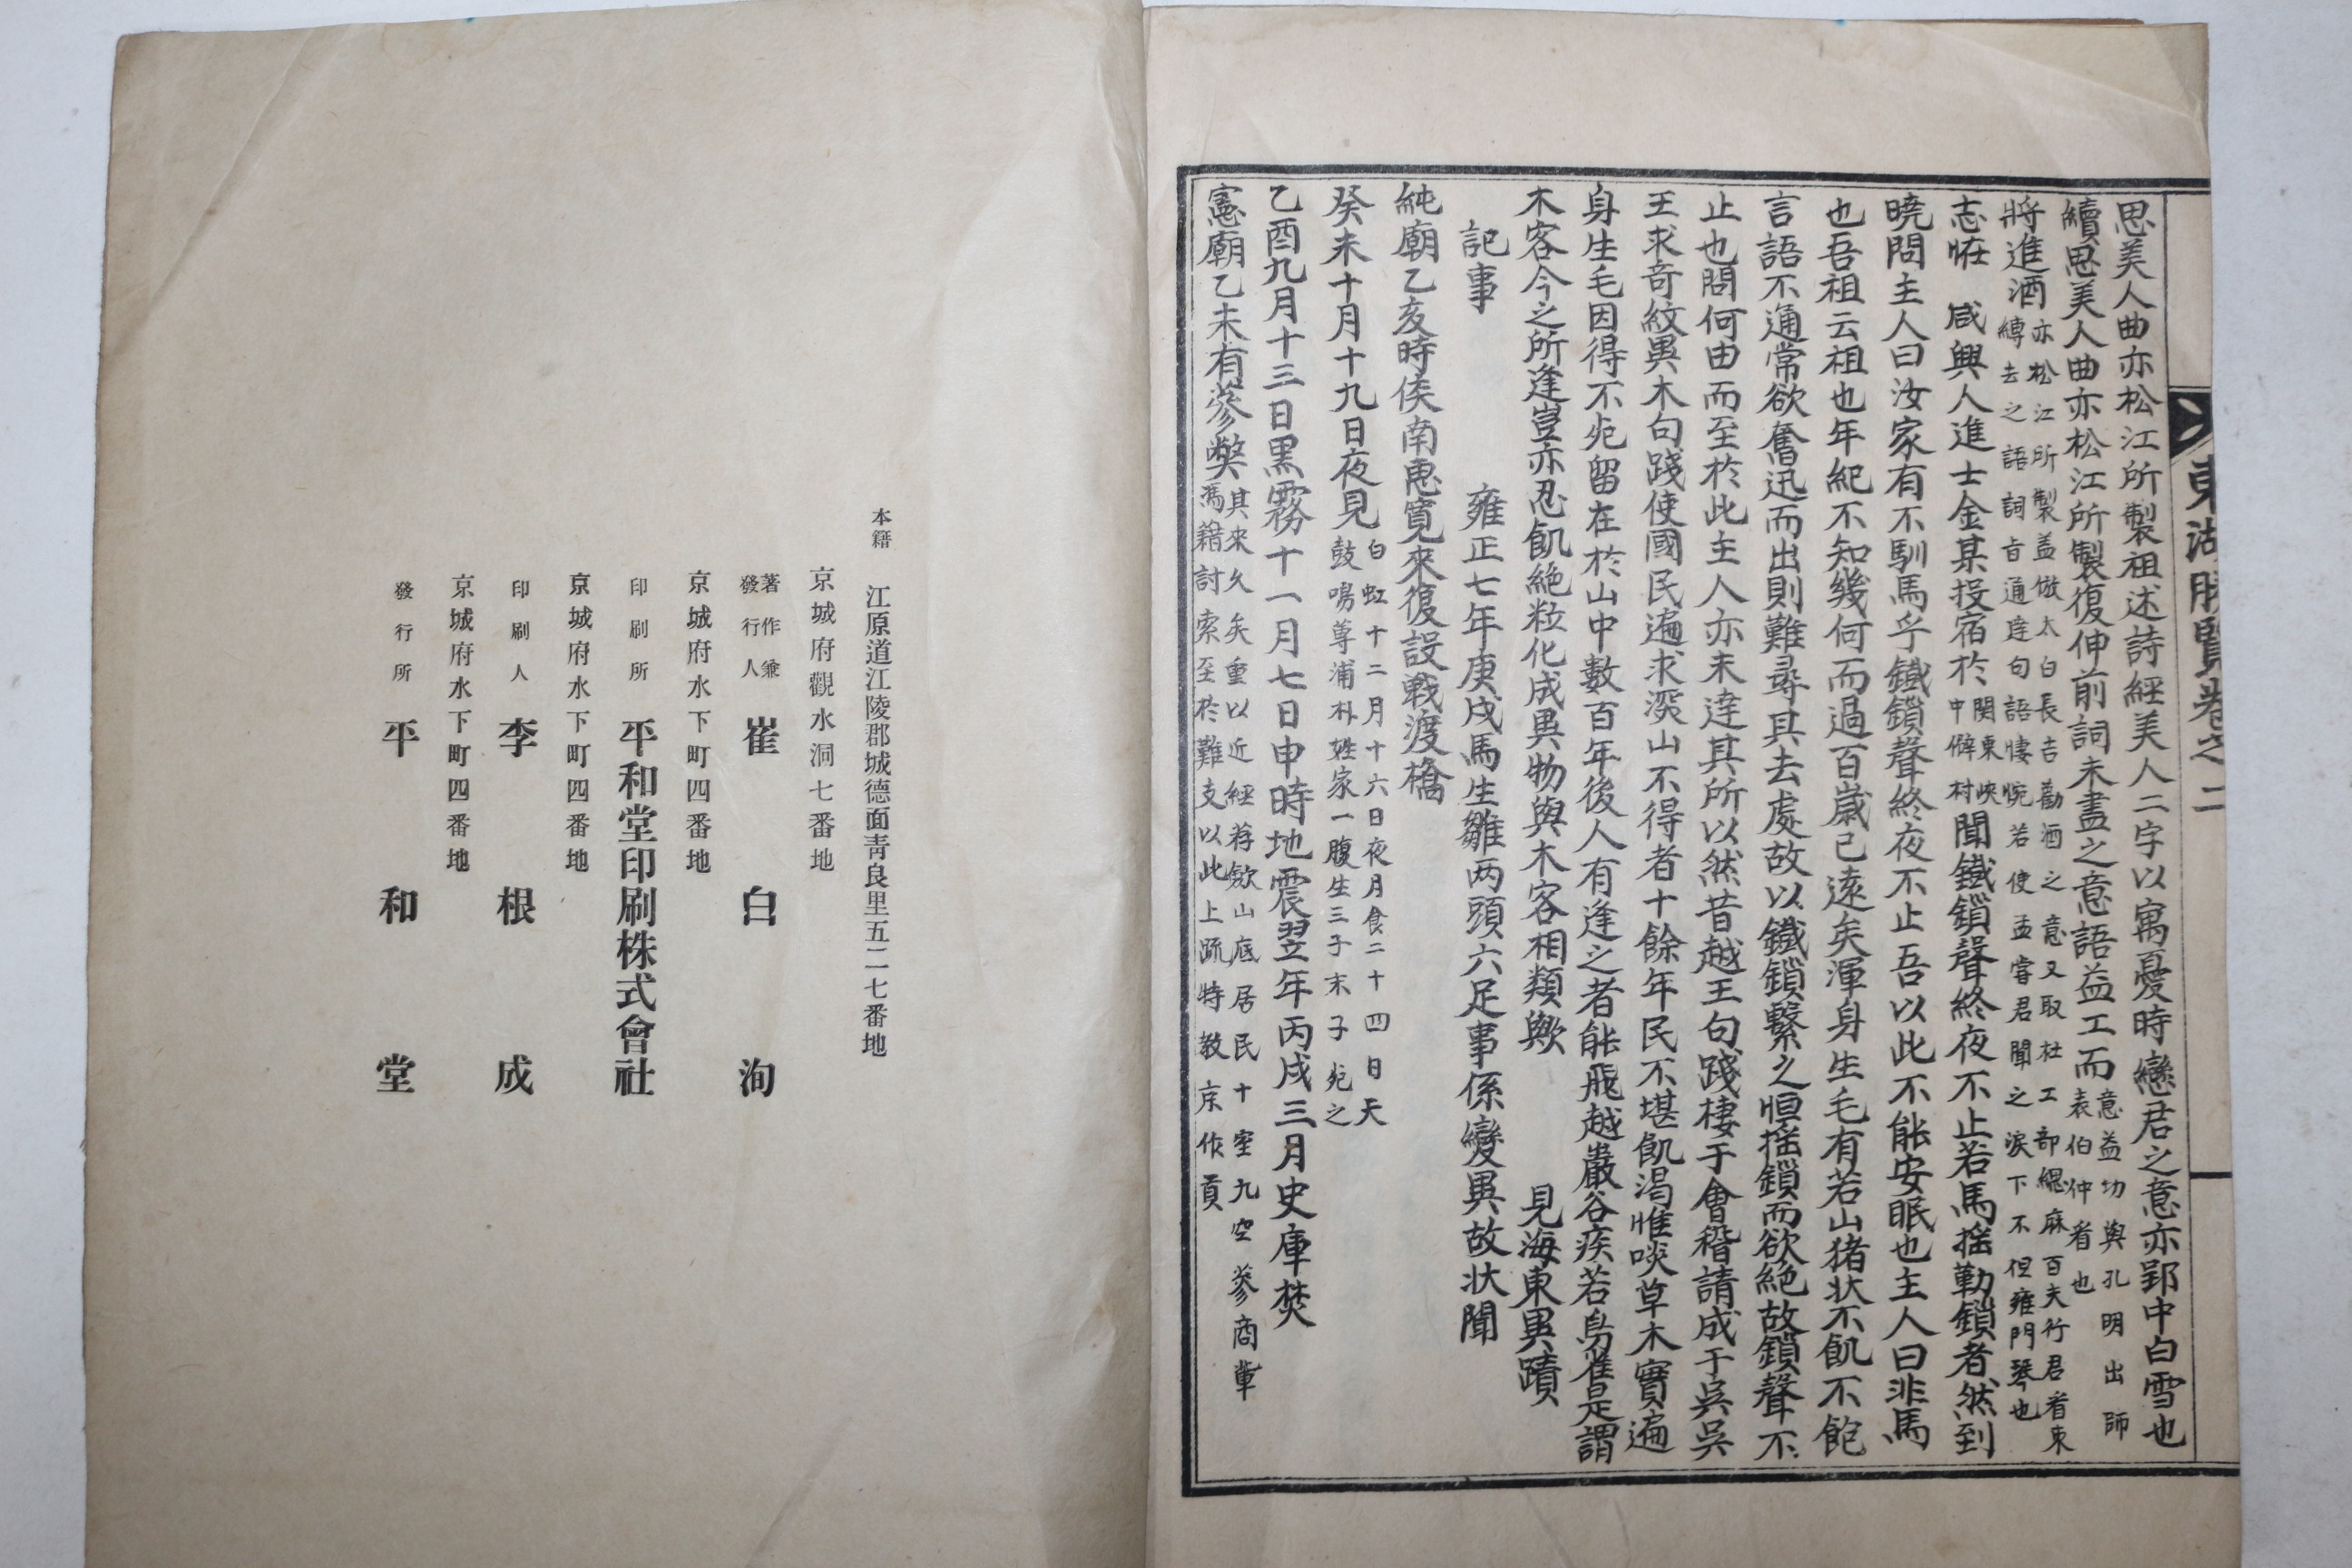 東湖勝覽卷之二
思美人曲亦松江所製祖述詩經美人二字以寓憂時戀君之意亦郢中白雪也
續思美人曲亦松江所製復伸前詞未盡之意語益工而意益切與孔明出師
表伯仲者也
將進酒亦松江所製盖倣太白長吉勸酒之意又取杜工部緦麻百夫行君看束
縛去之語詞旨通達句語悽惋若使孟嘗君聞之淚下不但雍門琴也
志恠 咸興人進士金某投宿於關東峽
中僻村聞鐵鎖聲終夜不止若馬搖勒鎖者然到
曉問主人曰汝家有不馴馬乎鐵鎖聲終夜不止吾以此不能安眠也主人曰非馬
也吾祖云祖也年紀不知幾何而過百歲已遠矣渾身生毛有若山猪狀不飢不飽
言語不通常欲奮迅而出則難尋其去處故以鐵鎖繫之恒搖鎖而欲絶故鎖聲不
止也問何由而至於此主人亦未達其所以然昔越王句踐棲于會稽請成于吳吳
王求奇紋異木句踐使國民遍求深山不得者十餘年民不堪飢渴惟啖草木實遍
身生毛因得不死留在於山中數百年後人有逢之者能飛越巖谷疾若鳥雀是謂
木客今之所逢豈亦忍飢絶粒化成異物與木客相類歟 見海東異蹟
記事 雍正七年庚戌馬生雛兩頭六足事係變異故狀聞
純廟乙亥時侯南惠寬來復設戰渡橋
癸未十月十九日夜見白虹十二月十六日夜月食二十四日天
鼓鳴尊浦朴姓家一腹生三子末子死之
乙酉九月十三日黑霧十一月七日申時地震翌年丙戌三月史庫焚
憲廟乙未有蔘獘其來久矣重以近經荐歉山底居民十室九空蔘商輩
馮藉討索至於難支以此上疏特敎京作貢
本籍 江原道江陵郡城德面靑良里五二七番地
京城府觀水洞七番地
著作兼
發行人 崔白洵
京城府水下町四番地
印刷所 平和堂印刷株式會社
京城府水下町四番地
印刷人 李根成
京城府水下町四番地
發行所 平和堂